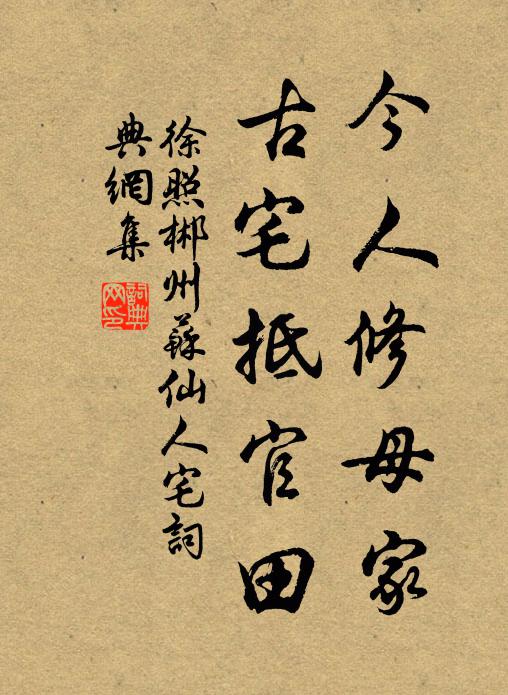 今人修毋家
古宅抵官田
徐照郴州蘇仙人宅詞
典網集
詞典网印